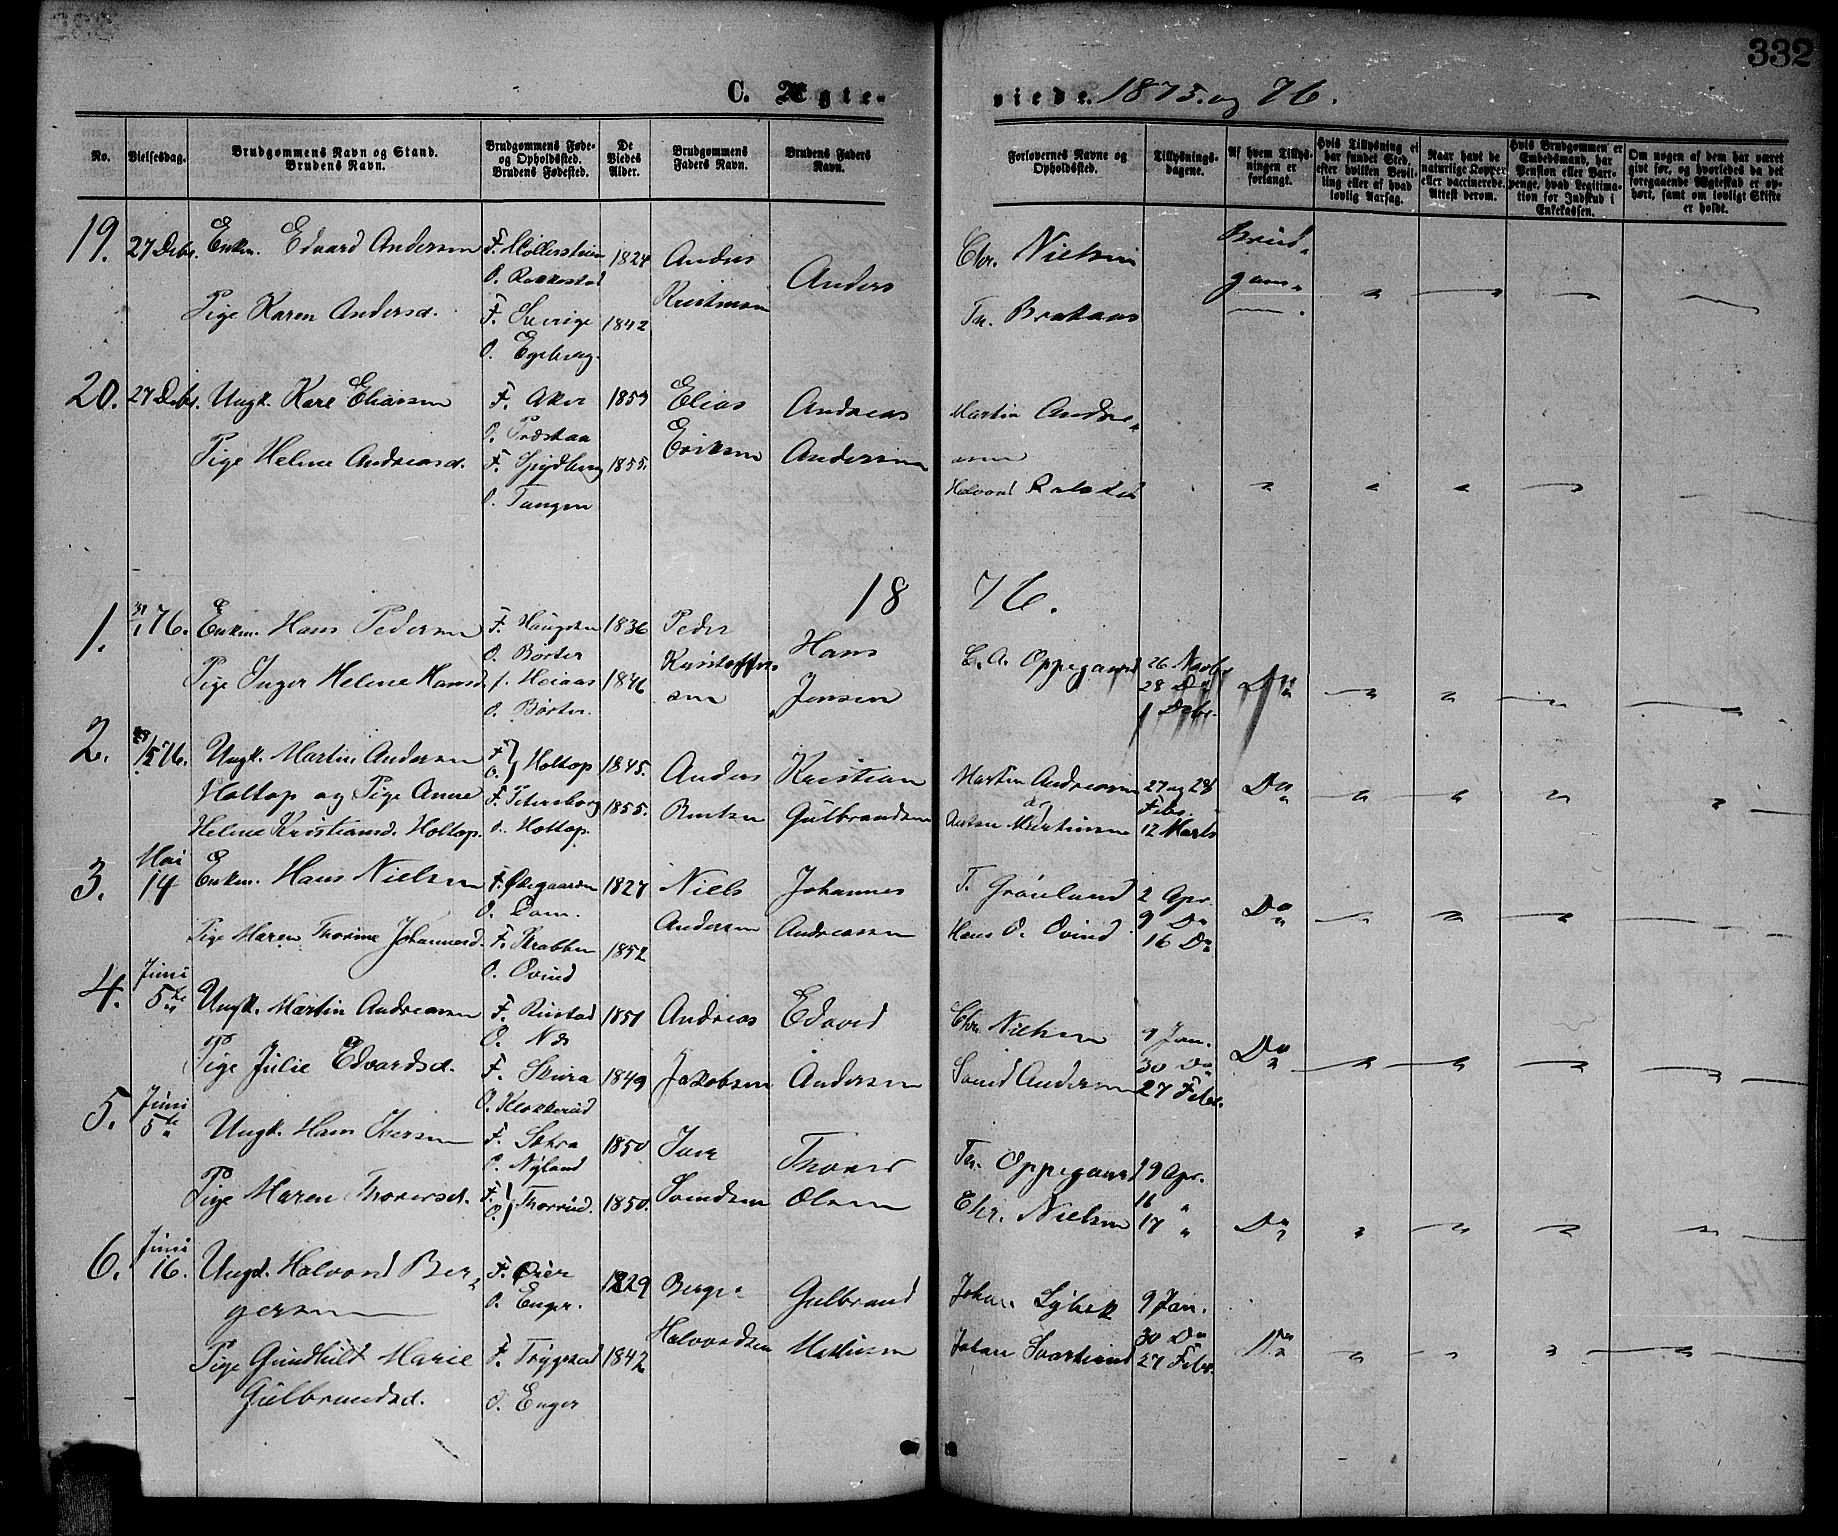 332
C. Ægte- viede. 1875. og 76.
No.
Vielsesdag.
Brudgommens Navn og Stand.
Brudens Navn.
Brudgommens Føde-
og Opholdssted.
Brudens Fødested.
De
Viedes
Alder.
Brudgommens
Faders Navn.
Brudens Faders
Navn.
Forlovernes Navne og
Opholdssted.
Tillysnings-
dagene.
Af hvem Tillys-
ningen er
forlangt.
Hvis Tillysning ei
har fundet Sted,
efter hvilken Bevil-
ling eller af hvad
lovlig Aarsag.
Naar havt de
naturlige Kopper
eller vaccinerede.
Attest derom.
Hvis Brudgommen er
Embedsmand, har
Pension eller Vart-
penge, hvad Legitima-
tion for Indskud i
Enkekassen.
Om nogen af dem har været
gift før, og hvorledes da det
foregaaende Ægteskab er op-
hørt, samt om lovligt Skifte
er holdt.
19. 27 Debr. Enkm. Edvard Andersen F. 1824 Anders Chr. Nielsen Brud-
O. Rakkestad Anders gom-
Pige Karen Andersd. F. Sverige 1842 Kristensen Th. Brataas
O. Egeberg.
20. 27 Debr. Ungk. Karl Eliassen F. Aker Elias Andreas Martin Andre-
O. Præstaa asen
Pige Helene Andreasd. F. Spydberg 1855. Eriksen Andersen Halvord
O. Tangen
1876.
1. 31/1 76. Enkm. Hans Pedersen F. Haugsten 1836 Peder Hans C. A. Oppegaard 26 Novbr
O. Børter Kristoffer- 28 Do Do
Pige Inger Helene Hansd. f. Heiaas 1846 sen Jensen 1 Debr.
O. Børter.
2. 76. Ungk. Martin Andersen F. O. Holtop 1845. Anders Kristian Martin Andreasen 27 og 28 Do
Holtop og Pige Anne F. Petersborg 1855. Gulbrandsen Febr.
Helene Kristiansd. Holtop. O. Holtop. Martinsen 12 Marts
3. Mai 14 Enkm. Hans Nielsen F. Øvegaarden 1827 Niels Johannes T. Grönland 2 Apr.
O. Dam. 9 Do Do
Pige Maren Thorine Johannesd. F. Krabben 1852 Andersen Andreassen Hans O. Ovind 16 Do
O. Ovind
4. Juni 5te Ungk. Martin Andreassen F. Rustad 1851 Andreas Edvard Chr. Nielsen 9 Jan.
O. Næs 30 Do Do
Pige Julie Edvardsd. F. Skura 1849 Jakobsen Andersen Svend Andersen 27 Febr.
O. Klokkerud
5. Juni 5te Ungk. Hans Iversen F. Sætra 1850 Iver Thorer Th. Oppegaard 9 Apr.
O. Nyland 16 "
Pige Maren Thorersd. F. O. Thorrud. 1850. Svendsen Olsen Chr. Nielsen 17 " Do
6. Juni 16. Ungk. Halvord Ber- F. Øier 1829 Berger Gulbrand Johan Lybek 9 Jan.
gersen O. Enger. 30 Do
Pige Gundhild Marie F. Trygstad 1842 Halvordsen Mathisen Johan Svartrud 27 Febr. Do
Gulbrandsd. O. Enger